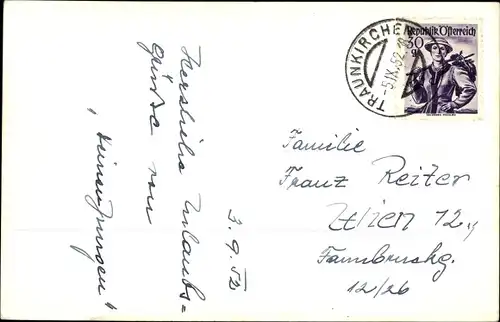 Republik Österreich
30
g
TRAUNKIRCHEN
-5.IX.52
3.9.52
Herzliche Urlaubs=
grüße von
Familie
Franz Reiter
Wien 12.,
12/26